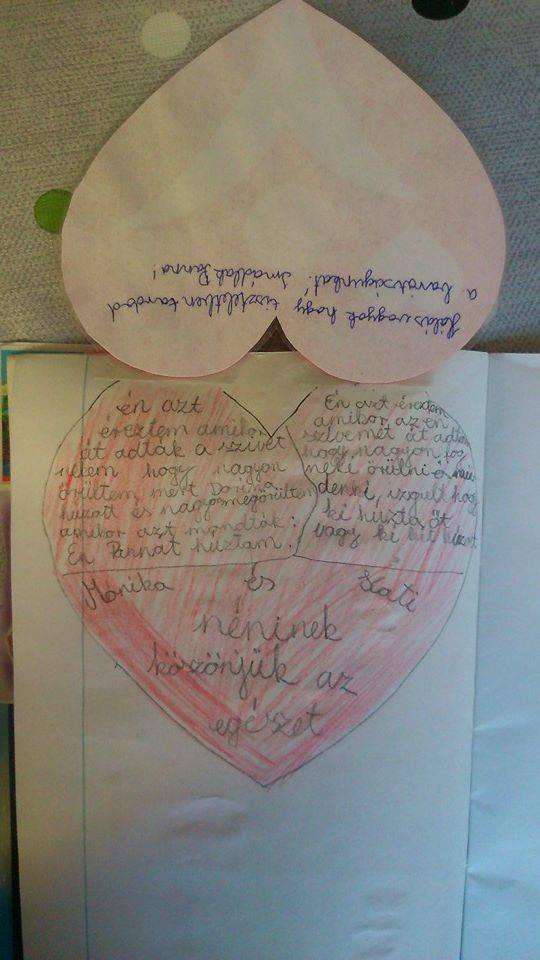 Hálás vagyok hogy tiszteletben tartod
a barátságunkat! Imádlak Panna!
én azt
éreztem amikor
át adták a szívet
nekem hogy nagyon
örültem mert Dorina
húzott és nagyon megörültem
amikor azt mondták:
Én Pannát húztam!
Én azt éreztem
amikor az én
szívemet át adtam
hogy nagyon fog
neki örülni és min
denki izgult hogy
ki húzta őt
vagy ki kit húzott
Mónika és Kati
néninek
köszönjük az
egészet